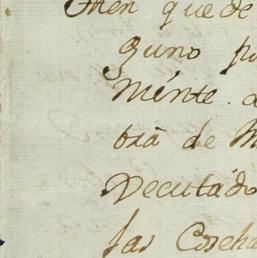 then quede
guno p
minte.
bra de M
Decutado
las Cosecha